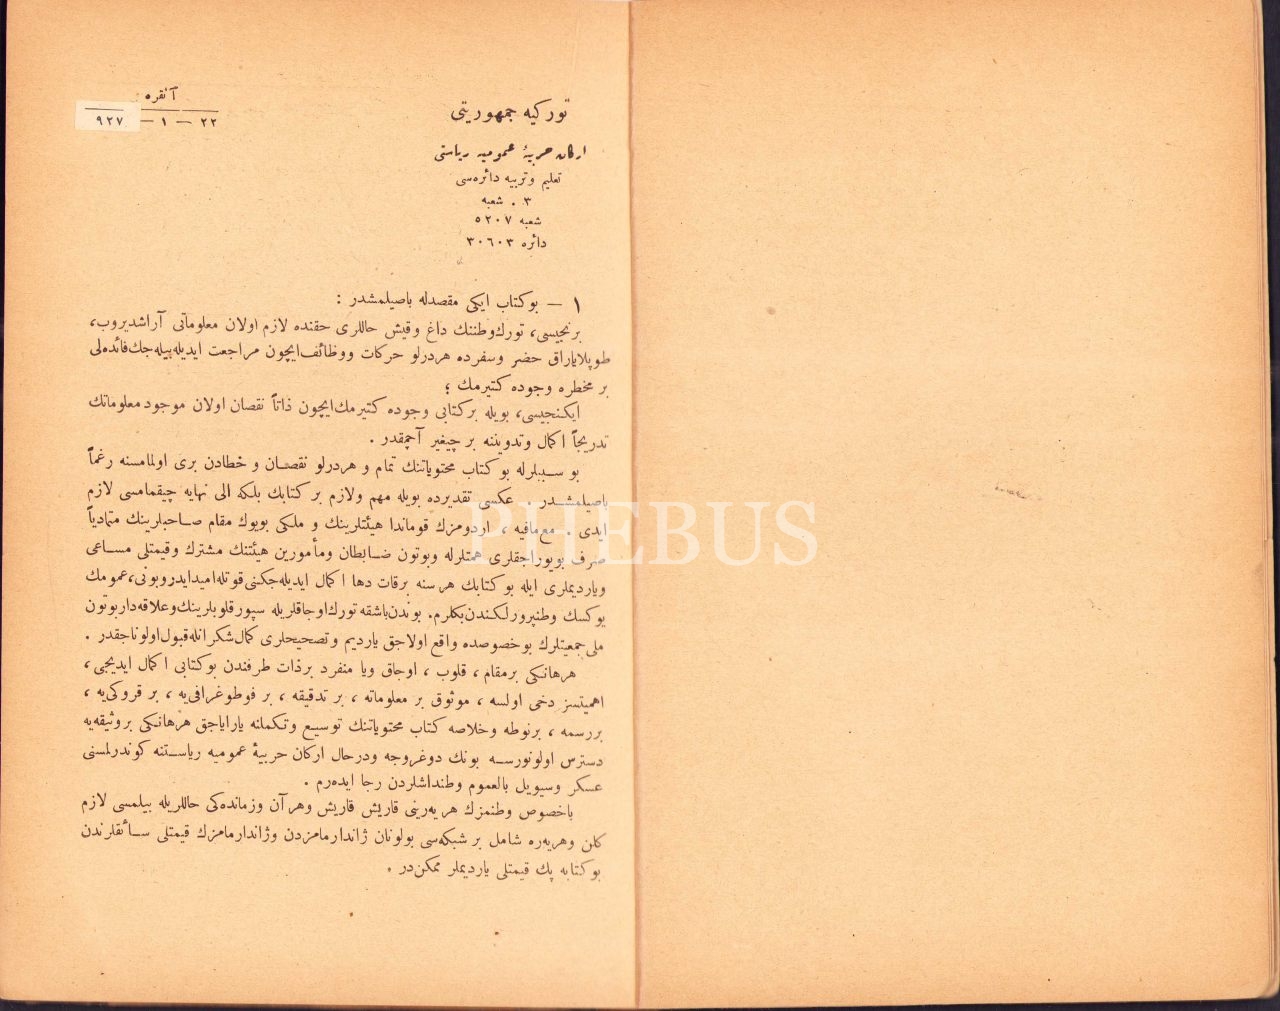 توركیه جمهوریتی
آنقره
٢٢ — ١ — ٩٢٧
اركان حربیهٔ عمومیه ریاستی
تعلیم وتربیه دائره‌سی
٣ . شعبه
شعبه ٥٢٠٧
دائره ٣٠٦٠٣
١ — بوكتاب ایكی مقصدله باصیلمشدر :
برنجیسی، تورك‌وطننك داغ وقیش حاللری حقنده لازم اولان معلوماتی آراشدیروب،
طوپلایاراق حضر وسفرده هردرلو حركات ووظائف‌ایچون مراجعت ایدیله‌بیله‌جك‌فائده‌لی
بر مخطره وجوده كتیرمك ؛
ایكنجیسی، بویله بركتابی وجوده كتیرمك‌ایچون ذاتاً نقصان اولان موجود معلوماتك
تدریجاً اكمال وتدویننه بر چیغیر آچمقدر .
بو سببلرله بو كتاب محتویاتنك تمام و هردرلو نقصان و خطادن بری اولمامسنه رغماً
باصیلمشدر . عكسی تقدیرده بویله مهم ولازم بر كتابك بلكه الی نهایه چیقمامسی لازم
ایدی . مع‌مافیه ، اردومزك قوماندا هیئتلرینك و ملكی بویوك مقام صاحبلرینك متمادیاً
صرف بویوراجقلری همتلرله وبوتون ضابطان ومأمورین هیئتنك مشترك وقیمتلی مساعی
ویاردیملری ایله بو كتابك هر سنه برقات دها اكمال ایدیله‌جكنی قوتله‌امیدایدروبونی،عمومك
یوكسك وطنپرورلكندن‌بكلرم. بوندن‌باشقه تورك‌اوجاقلریله سپورقلوبلرینك‌وعلاقه‌داربوتون
ملی جمعیتلرك بوخصوصده واقع اولاجق یاردیم وتصحیحلری كمال‌شكرانله‌قبول‌اولوناجقدر .
هرهانكی برمقام ، قلوب ، اوجاق ویا منفرد برذات طرفندن بوكتابی اكمال ایدیجی ،
اهمیتسز دخی اولسه ، موثوق بر معلوماته ، بر تدقیقه ، بر فوطوغرافی‌یه ، بر قروكی‌یه ،
بررسمه ، برنوطه وخلاصه كتاب محتویاتنك توسیع وتكملنه یارایاجق هرهانكی بروثیقه‌یه
دسترس اولونورسه بونك دوغروجه ودرحال اركان حربیهٔ عمومیه ریاستنه كوندرلمسنی
عسكر وسیویل بالعموم وطنداشلردن رجا ایده‌رم .
باخصوص وطنمزك هر یه‌رینی قاریش قاریش وهرآن وزمانده‌كی حاللریله بیلمسی لازم
كلن وهریه‌ره شامل بر شبكه‌سی بولونان ژاندارمامزدن وژاندارمامزك قیمتلی سائقلرندن
بوكتابه پك قیمتلی یاردیملر ممكن‌در .
PHEBUS